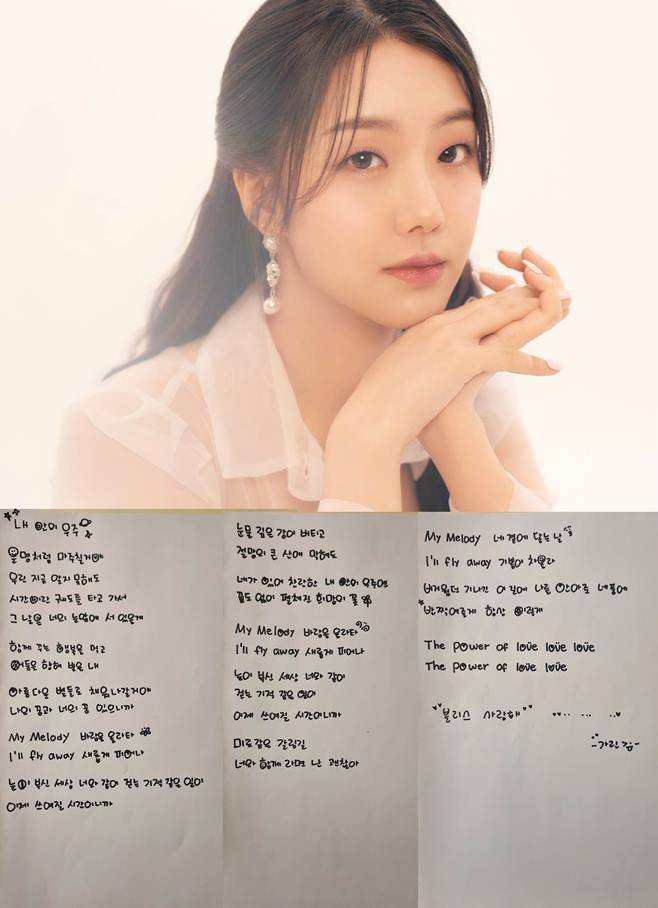 내 안의 우주
운명처럼 마주칠거야
우린 지금 알지 못해도
시간이란 궤도를 타고 가서
그 날엔 너의 눈앞에 서 있을게
함께 꾸는 행복을 먹고
어둠을 향해 뱉은 내
아름다운 별들로 채워나갈거야
나의 꿈과 너의 꿈 있으니까
My Melody 바람을 올라타
I'll fly away 새롭게 피어나
눈이 부신 세상 너와 같이 걷는 기적 같은 일이
이제 쓰여질 시간이니까
눈물 깊은 강에 버티고
절망의 큰 산에 막혀도
네가 있어 찬란한 내 안의 우주엔
끝도 없이 펼쳐진 희망의 꽃
My Melody 바람을 올라타
I'll fly away 새롭게 피어나
눈이 부신 세상 너와 같이
걷는 기적 같은 일이
이제 쓰여질 시간이니까
미로같은 갈림길
너와 함께 라면 난 괜찮아
My Melody 네 곁에 닿는 날
I'll fly away 기쁨이 차올라
버거웠던 기나긴 이 길에 나를 안아준 네 품에
반짝이르게 항상 이렇게
The power of love love love
The power of love love love
블리스 사랑해
-가린 김-